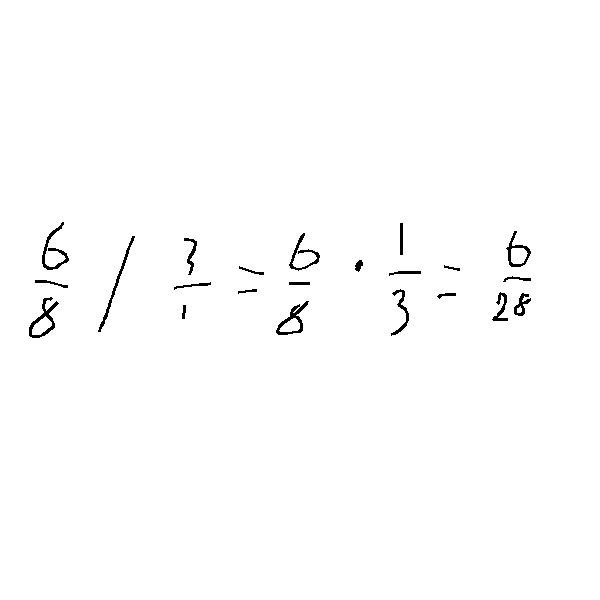 6/8 / 3/1 = 6/8 · 1/3 = 6/28